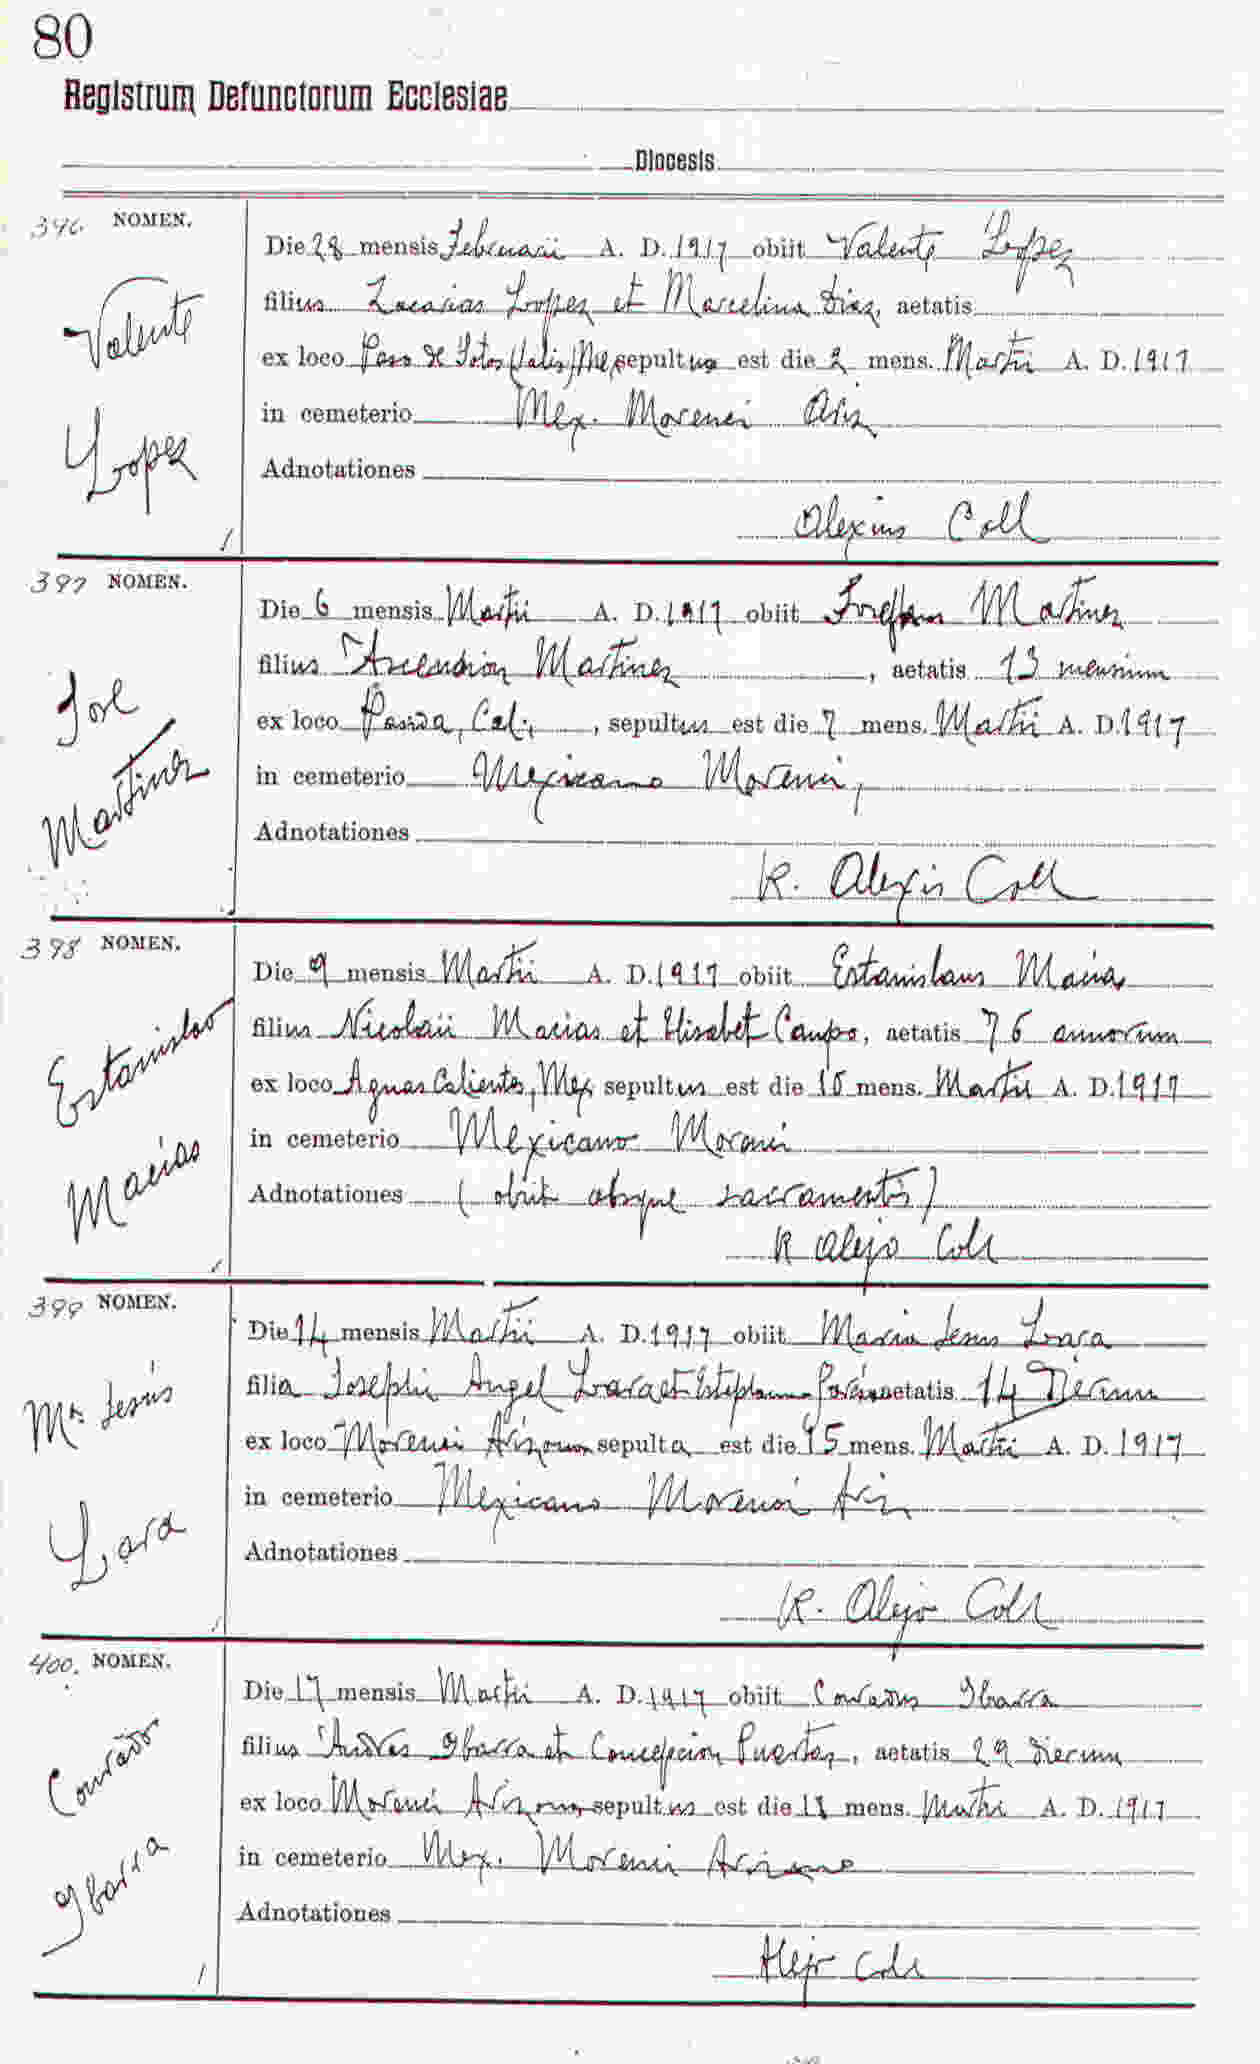 80
Registrum Defunctorum Ecclesiae
Diocesis
396. NOMEN.
Valente
Lopez
Die 28 mensis Februarii A. D. 1917 obiit Valente Lopez
filius Zacarias Lopez et Marcelina Dias, aetatis
ex loco Paso de Sotos (Jalis) Mex sepultus est die 2 mens. Martii A. D. 1917
in cemeterio Mex. Morenci Ariz
Adnotationes
Alexius Coll
397 NOMEN.
Jose
Martinez
Die 6 mensis Martii A. D. 1917 obiit Martinez
filius Ascension Martinez, aetatis 13 mensium
ex loco Cal., sepultus est die 7 mens. Martii A. D. 1917
in cemeterio Mexicano Morenci,
Adnotationes
R. Alexis Coll
398 NOMEN.
Estanislao
Macias
Die 9 mensis Martii A. D. 1917 obiit Estanislaus Macias
filius Nicolaii Macias et Elisabet Campo, aetatis 76 annorum
ex loco Aguas Calientes, Mex sepultus est die 10 mens. Martii A. D. 1917
in cemeterio Mexicano Morenci
Adnotationes (obiit absque sacramentis)
R Alejo Coll
399 NOMEN.
Ma. Jesús
Lara
Die 14 mensis Martii A. D. 1917 obiit Maria Jesus Lara
filia Josephi Angel Lara et aetatis 14 Dierum
ex loco Morenci Arizona sepulta est die 15 mens. Martii A. D. 1917
in cemeterio Mexicano Morenci Ariz
Adnotationes
R. Alejo Coll
400. NOMEN.
Conrado
Ybarra
Die 17 mensis Martii A. D. 1917 obiit Conradus Ybarra
filius Andres Ybarra et Concepcion Puertas, aetatis 29 dierum
ex loco Morenci Arizona sepultus est die 18 mens. Martii A. D. 1917
in cemeterio Mex. Morenci Arizona
Adnotationes
Alejo Coll